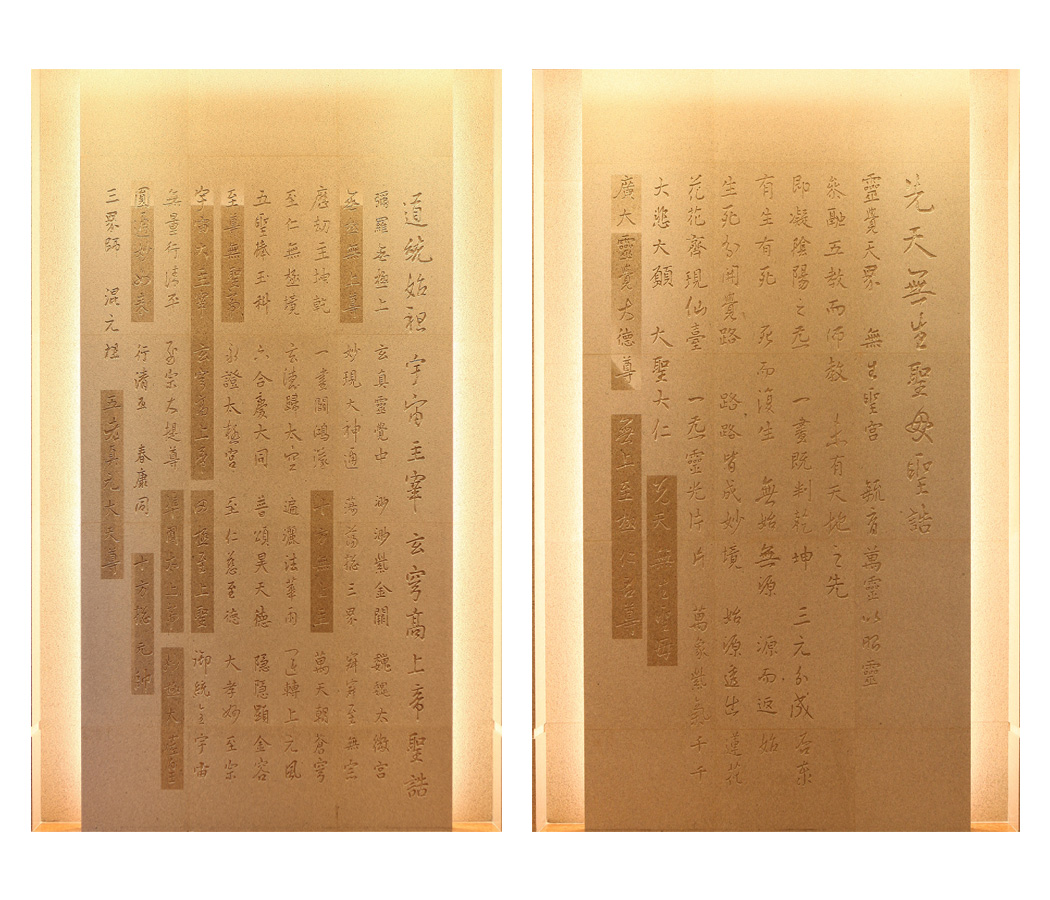 道統始祖 宇宙主宰 玄穹高上帝聖誥
彌羅無極上 玄真靈覺中 渺渺紫金闕 巍巍太微宮
無極無上尊 妙現大神通 蕩蕩極三界 寂寂至無宗
歷劫主坤乾 一畫開鴻濛 十方無上主 萬天朝蒼穹
至仁無極境 玄法歸太空 遍灑法華雨 轉上元風
五聖捧玉科 六合慶大同 普頌昊天德 隱隱顯金容
至尊無 永證太極宮 至仁慈至德 大孝妙至宗
宇宙大主宰 玄穹高上帝 四極至上聖 御統全宇宙
無量行清平 宗大堤尊 無上尊 妙極大
圓通妙如來 行清 春康同 十方極元神
三界歸 混元 五老真元大天尊
先天無生聖母聖誥
靈覺天界 無生聖宮 毓育萬靈以昭靈
炁融五教而師教 出有天地之先
即凝陰陽之炁 一畫既判乾坤 三元分成 否泰
有生有死 死而復生 無始無源 源而返始
生死分開覺路 路路皆成妙境 始源透出 蓮花
花花齊現仙臺 一炁靈光片片 萬象紫氣千千
大悲大願 大聖大仁 先天無生聖母
廣大靈覺大德尊 無上至極仁召尊